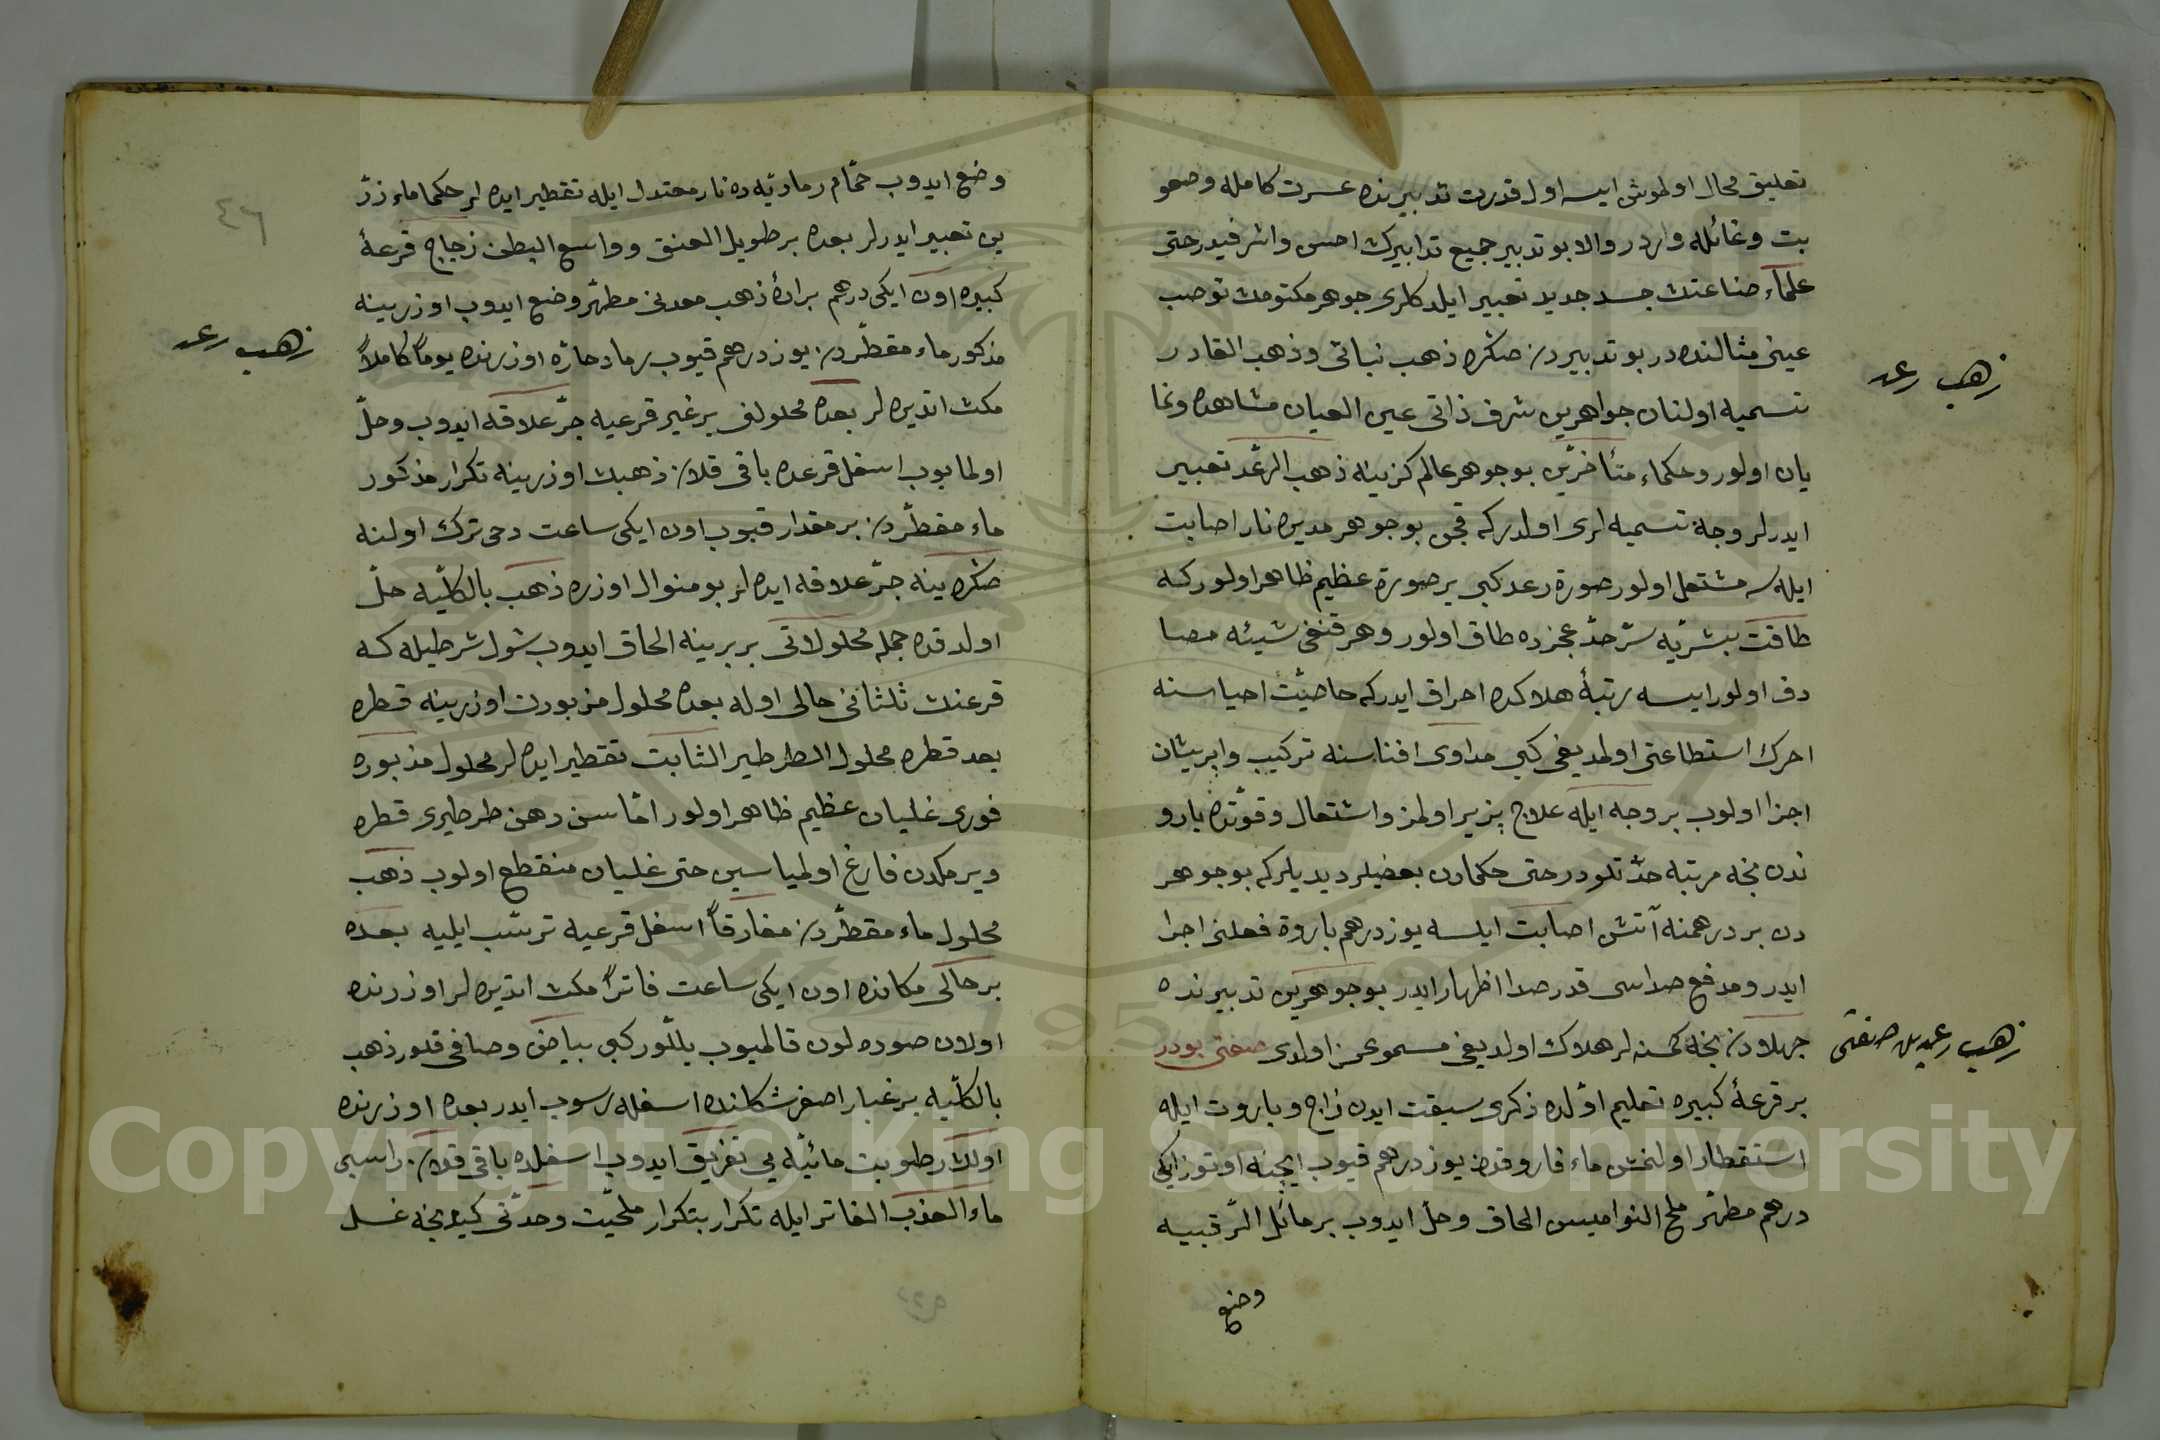 تعليق محال اولموش ايسه اول قدرت تدبيرنده عسرت كامله وصعو
بت وغائله واردر والا بو تدبير جميع تدابيرك احسن واشرفيدر حتى
علماء صناعتك جسد جديد تعبير ايلدكلرى جوهر مكتومك توصب
عينى مثالنده در بو تدبيردن صكره ذهب نباتى وذهب القادر
تسميه اولنان جواهرين شرف ذاتى عين العيان مشاهده ونما
يان اولور وحكماء متأخرين بو جوهر عالم كزينه ذهب الرعد تعبير
ايدرلر وجه تسميه لرى اولدركه قچن بو جوهر مديره نار اصابت
ايله سه مشتعل اولور صورة رعد كبى بر صورة عظيم ظاهر اولور كه
طاقت بشريه سر حد عجزده طاق اولور وهر قنغى شيئه مصا
دف اولور ايسه رتبهٔ هلاكده احراق ايدركه خاصيت احياسنه
احرك استطاعتى اولمديغى كبى مداوى افناسنه تركيب وابريشان
اجزا اولوب بر وجه ايله علاج پزير اولمز واشتعال وقوتده بارو
تدن نخه مرتبه حدتلودر حتى حكمادن بعضيلر ديديلركه بو جوهر
دن بر درهمنه آتش اصابت ايلسه يوز درهم باروة فعلنى اجرا
ايدر ومدفع صداسى قدر صدا اظهار ايدر بو جوهرين تدبيرنده
جهلادن نخه كمسنه لر هلاك اولديغى مسموعمز اولدى صفتى بودر
بر قرعهٔ كبيره تعليم اولده ذكرى سبقت ايدن زاج وباروت ايله
استقطار اولنمش ماء فاروقدن يوز درهم قيوب ايچنه اوتوز ايكى
درهم مطهر ملح النواميس الحاق وحل ايدوب بر مائل الرقبيه
وضع
زهب رعد
زهب رعدين صفتى
٤٦
وضع ايدوب حمام رماديه ده نار معتدل ايله تقطير ايده لر حكما ماء زر
ين تعبير ايدرلر بعده بر طويل العنق وواسع البطن زجاج قرعهٔ
كبيره اون ايكى درهم برادهٔ ذهب معدنى مطهر وضع ايدوب اوزرينه
مذكور ماء مقطردن يوز درهم قيوب رماد حاره اوزرنده يوماً كاملاً
مكث اتديره لر بعده محلولنى بر غير قرعيه جر علاقه ايدوب وحل
اولمايوب اسفل قرعده باقى قلان ذهبك اوزرينه تكرار مذكور
ماء مقطردن بر مقدار قيوب اون ايكى ساعت دخى ترك اولنه
صكره ينه جر علاقه ايده لر بو منوال اوزره ذهب بالكليه حل
اولدقده جمله محلولاتى بربرينه الحاق ايدوب شول شرطيله كه
قرعنك ثلثانى خالى اوله بعده محلول مزبورك اوزرينه قطره
بعد قطره محلول الطرطير الثابت تقطير ايده لر محلول مذبوره
فورى غليان عظيم ظاهر اولور اما سن دهن طرطيرى قطره
ويرمكدن فارغ اولمياسين حتى غليان منقطع اولوب ذهب
محلول ماء مقطردن مفارقاً اسفل قرعيه ترسب ايليه بعده
بر خالى مكانده اون ايكى ساعت فاتراً مكث اتديره لر اوزرنده
اولان صوده لون قالميوب بللور كبى بياض وصافى قلور ذهب
بالكليه بر غبار اصفر شكلنده اسفله رسوب ايدر بعده اوزرنده
اولان رطوبت مائيه يى تفريق ايدوب اسفلده باقى قلان راسبى
ماء العذب الفاتر ايله تكرار بتكرار ملحيت وحدتى كيدنجه غسل
زهب رعد